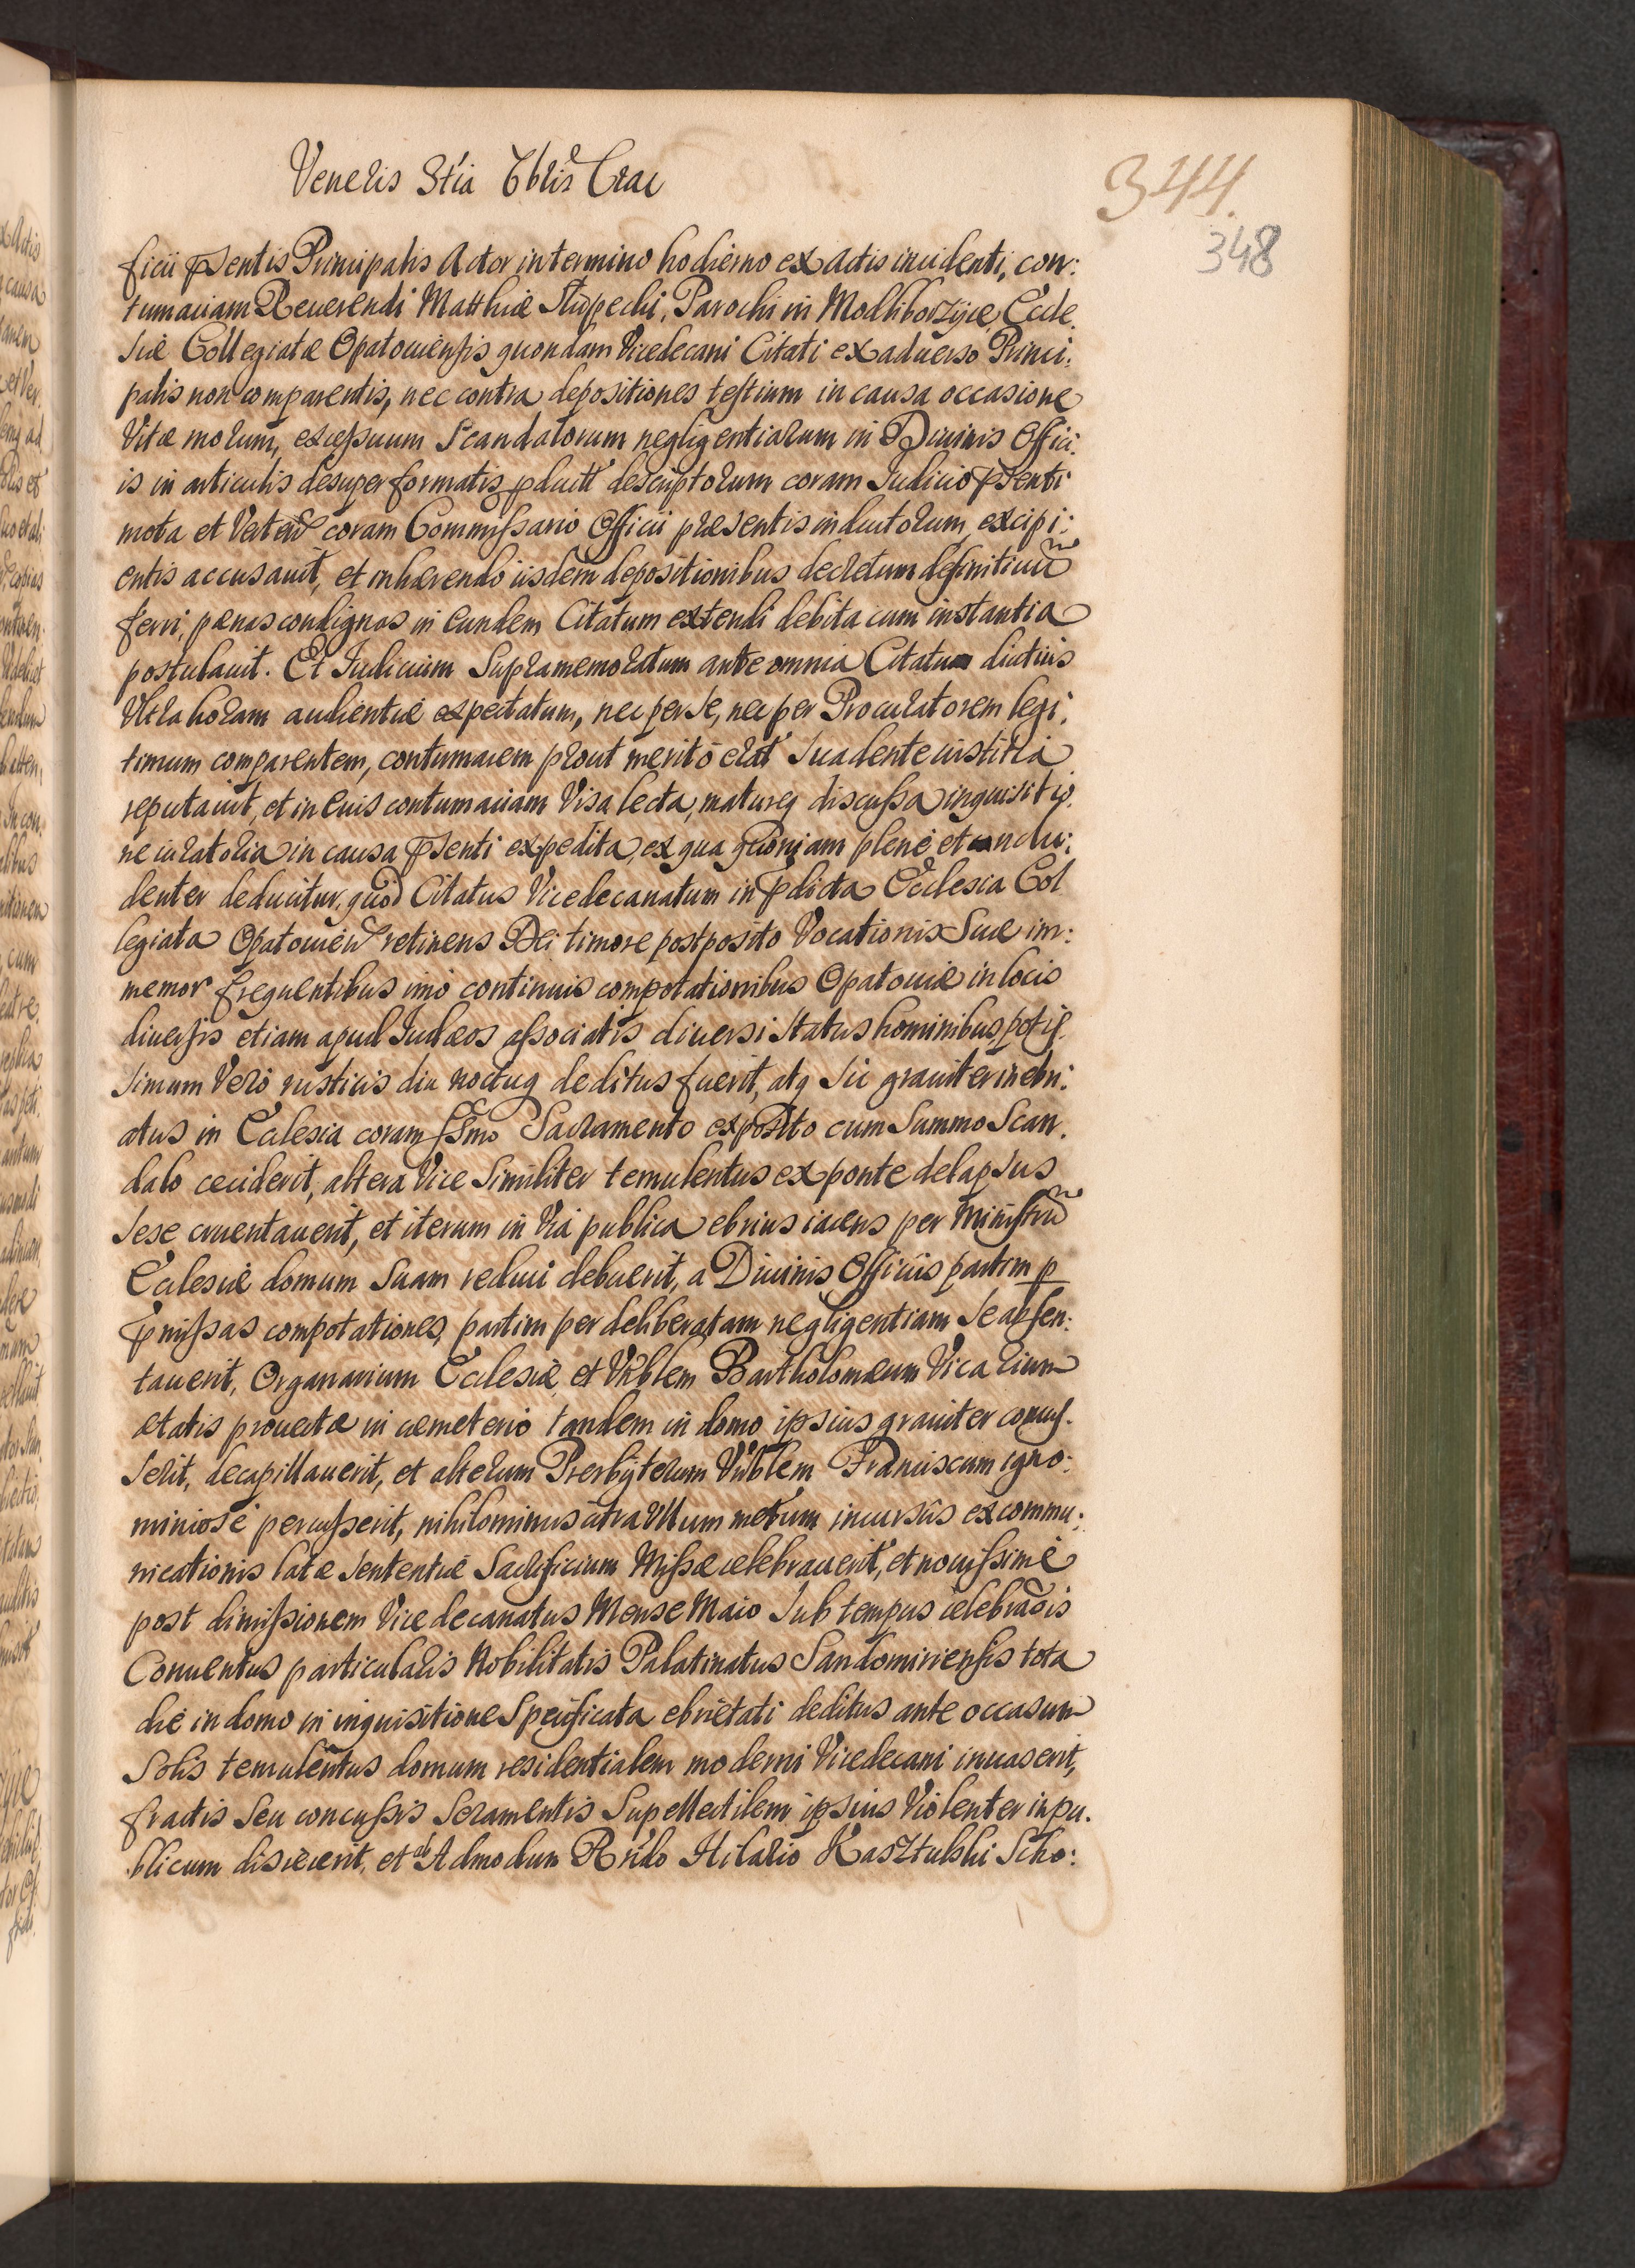 Veneris 3tia 7bris Crac
344.
348
ficii pntis Principalis Actor in termino hodierno ex Actis incidenti, con:
tumaciam Reuerendi Matthiæ Słupecki, Parochi in Modliborzyce, Eccle.
siæ Collegiatæ Opatouiensis quondam Vicedecani Citati ex aduerso Princi.
palis non comparentis, nec contra depositiones testium in causa occasione
Vitæ morum, excessuum Scandalorum negligentiarum in Diuinis Offici.
is in articulis desuper formatis pductt descriptorum coram Iudicio psenti
mota et Verteñ coram Commissario Officii præsentis inductorum, excipi:
entis accusauit, et inhærendo iisdem depositionibus decretum definitiuũ
ferri, pænas condignas in eundem Citatum extendi debita cum instantia
postulauit. Et Iudicium Supramemoratum ante omnia Citatum diutius
Vltra horam audientiæ expectatum, nec per se, nec per Procuratorem legi.
timum comparentem, contumacem prout meritò erat suadente iustitia
reputauit, et in eius contumaciam Visa lecta, matureq discussa inquisitio.
ne iuratoria in causa psenti expedita, ex qua quoniam plenè et conclu:
denter deducitur, quòd Citatus Vicedecanatum in pdicta Ecclesia Col
legiata Opatouień retinens Dei timore postposito Vocationis Suæ im:
memor frequentibus imò continuis compotationibus Opatouiæ in locis
diuersis etiam apud Iudæos associatis diuersi status hominibus, potis.
simum Verò rusticis diu noctuq deditus fuerit, atq sic grauiter inebri:
atus in Ecclesia coram SSmo Sacramento exposito cum Summo Scan.
dalo ceciderit, altera Vice Similiter temulentus ex ponte delapsus
sese cruentauerit, et iterum in Via publica ebrius iacens per Ministrũ
Ecclesiæ domum Suam reduci debuerit, a Diuinis Officiis partim p
pmissas compotationes, partim per deliberatam negligentiam se absen:
tauerit, Organarium Ecclesiæ, et Vñblem Bartholomæum Vicarium
ætatis prouectæ in cæmeterio tandem in domo ipsius grauiter concus.
serit, decapillauerit, et alterum Presbyterum Vñblem Franciscum igno:
miniosè percusserit, nihilominus citra Vllum metum incursûs excommu:
nicationis latæ sententiæ Sacrificium Missæ celebrauerit, et nouissimè
post dimissionem Vicedecanatus Mense Maio Sub tempus celebrãois
Conuentus particularis Nobilitatis Palatinatus Sandomiriensis tota
die in domo in inquisitione Specificata ebrietati deditus ante occasum
Solis temulentus domum residentialem moderni Vicedecani inuaserit,
fractis Seu concussis Seramentis Supellectilem ipsius Violenter in pu.
blicum disiecerit, et ab Admodum Rñdo Hilario Kasztulski Scho: